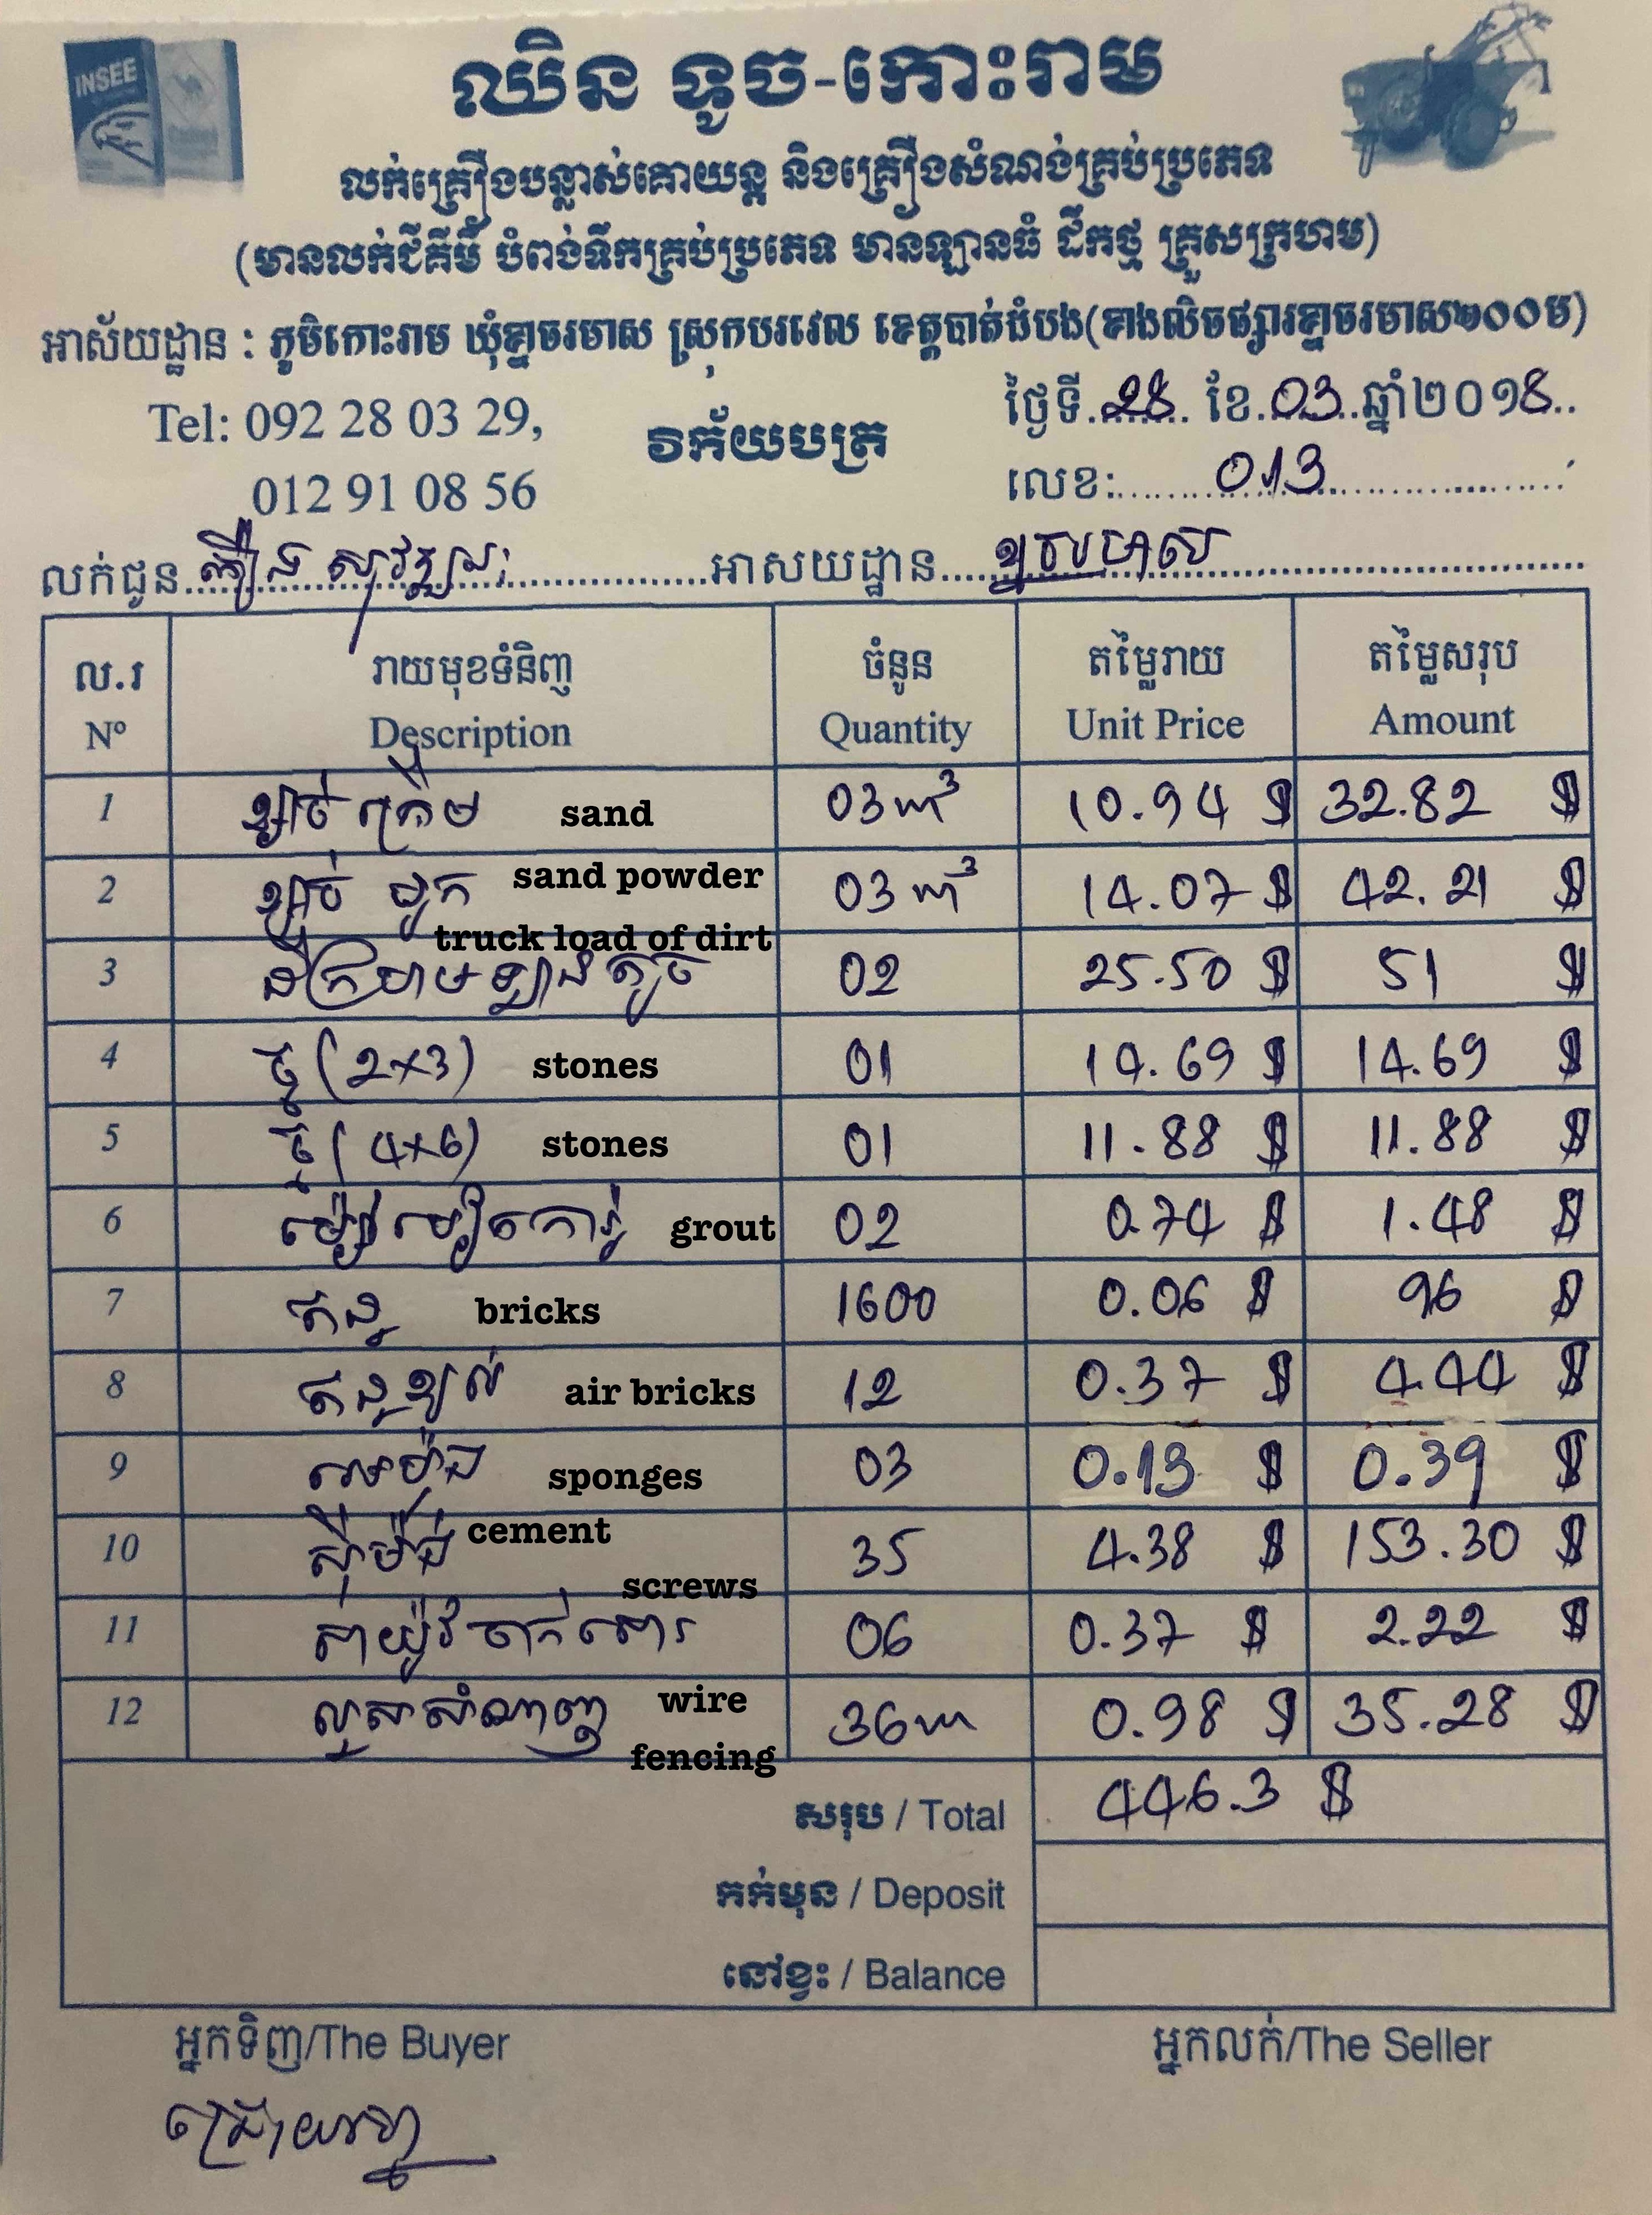 INSEE
ឈិន ទូច-កោះរាម
លក់គ្រឿងបន្លាស់គោយន្ត និងគ្រឿងសំណង់គ្រប់ប្រភេទ
(មានលក់ជីគីមី បំពង់ទឹកគ្រប់ប្រភេទ មានឡានធំ ដឹកថ្ម គ្រួសក្រហម)
អាស័យដ្ឋាន : ភូមិកោះរាម ឃុំខ្នាចរមាស ស្រុកបវេល ខេត្តបាត់ដំបង(ខាងលិចផ្សារខ្នាចរមាស២០០ម)
Tel: 092 28 03 29,
012 91 08 56
វិក័យបត្រ
ថ្ងៃទី 28 ខែ 03 ឆ្នាំ២០១8
លេខ: 013
លក់ជូន អាសយដ្ឋាន ខ្នាចរមាស
ល.រ រាយមុខទំនិញ ចំនួន តម្លៃរាយ តម្លៃសរុប
Nº Description Quantity Unit Price Amount
1 ខ្សាច់ sand 03m³ 10.94 $ 32.82 $
2 ខ្សាច់ sand powder 03m³ 14.07 $ 42.21 $
truck load of dirt
3 ដីក្រហមឡានតូច 02 25.50 $ 51 $
4 ថ្ម (2x3) stones 01 14.69 $ 14.69 $
5 ថ្ម (4x6) stones 01 11.88 $ 11.88 $
6 grout 02 0.74 $ 1.48 $
7 ឥដ្ឋ bricks 1600 0.06 $ 96 $
8 ឥដ្ឋខ្យល់ air bricks 12 0.37 $ 4.44 $
9 sponges 03 0.13 $ 0.39 $
10 ស៊ីម៉ង់ cement 35 4.38 $ 153.30 $
screws
11 06 0.37 $ 2.22 $
12 លួសសំណាញ់ wire 36m 0.98 $ 35.28 $
fencing
សរុប / Total 446.3 $
កក់មុន / Deposit
នៅខ្វះ / Balance
អ្នកទិញ/The Buyer អ្នកលក់/The Seller